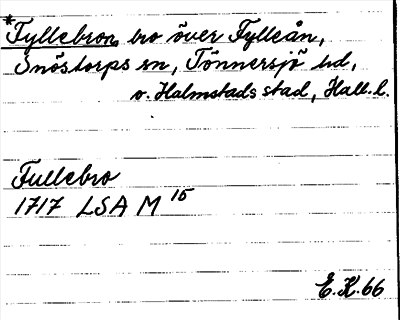 *Fyllebron, bro över Fylleån,
Snöstorps sn, Tönnersjö hd,
o. Halmstads stad, Hall. l.
Fullebro
1717 LSA M 15
E.K. 66